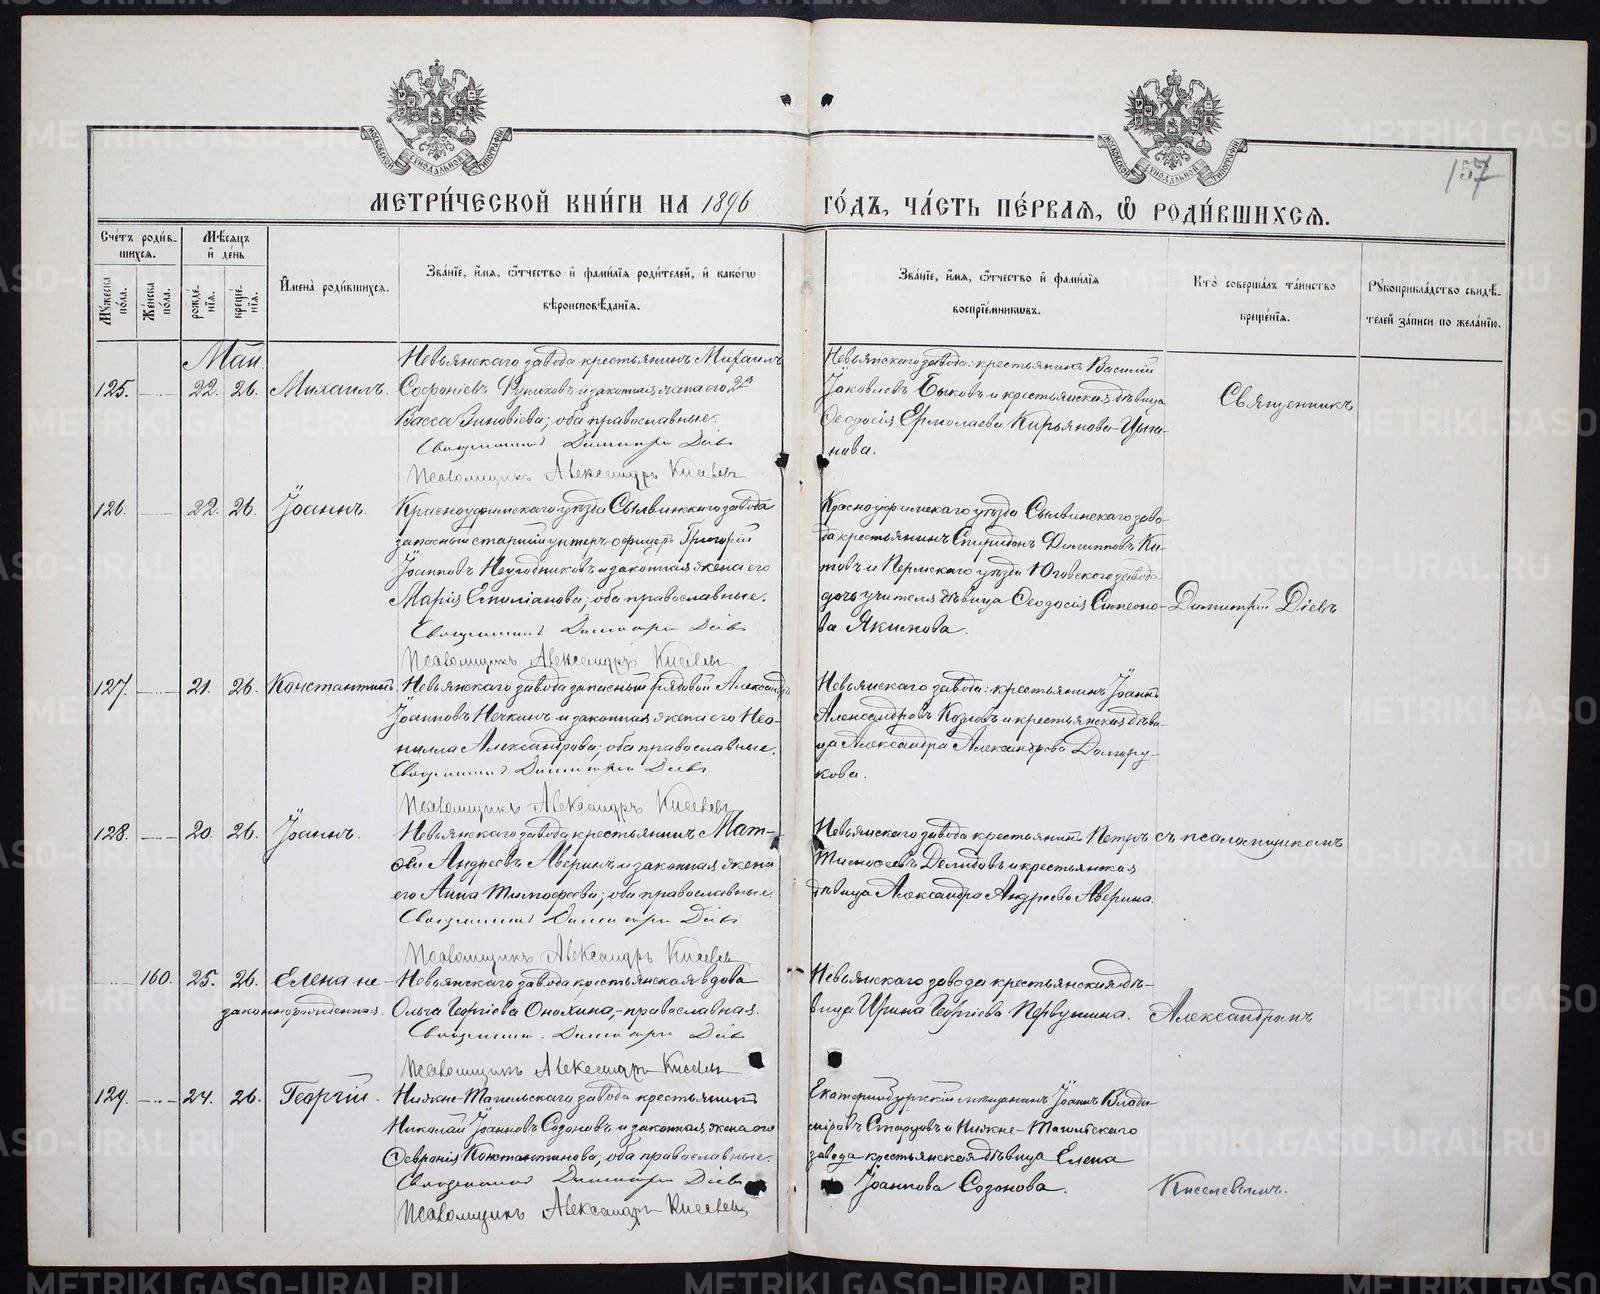 157
МЕТРИ́ЧЕСКОЙ КНИ́ГИ НА 1896 ГО́ДЪ, ЧА́СТЬ ПЕ́РВАЯ, Ѽ РОДИ́ВШИХСЯ.
Сче́тъ роди́в-
шихся.
Мѣ́сяцъ
и҆ де́нь
Мꙋ́жеска по́ла.
Же́нска по́ла.
рожде́-
нїѧ.
креще́-
нїѧ.
И҆мена̀ роди́вшихся.
Зва́нїе, и҆́мя, ѻ҆́тчество и҆ фами́лїя роди́телей, и҆ како́гѡ
вѣроисповѣ́данїя.
Зва́нїе, и҆́мя, ѻ҆́тчество и҆ фами́лїя
воспрїе́мникѡвъ.
Кто̀ соверша́лъ та́инство
креще́нїя.
Рꙋкоприкла́дство свидѣ́-
телей за́писи по жела́нїю.
Май
125. 22. 26. Михаилъ.
Невьянскаго завода крестьянинъ Михаилъ
Софроніевъ и законная жена его
Васса Зиновіева; оба православные.
Священникъ Димитрій Діевъ
Псаломщикъ Александръ Киселевъ
Невьянскаго завода: крестьянинъ Василій
Яковлевъ Быковъ и крестьянская дѣвица
Ѳеодосія Ермолаева Кирьянова-Цыга-
нова.
Священникъ
126. 22. 26. Іоаннъ.
Красноуфимскаго уѣзда Сылвинскаго завода
запасный старшій унтеръ-офицеръ Григорій
Іоанновъ Неугодниковъ и законная жена его
Марія Емиліанова; оба православные.
Священникъ Димитрій Діевъ
Псаломщикъ Александръ Киселевъ
Красноуфимскаго уѣзда Сылвинскаго заво-
да крестьянинъ Спиридонъ Филипповъ Ки-
товъ и Пермскаго уѣзда Юговскаго завода
дочь учителя дѣвица Ѳеодосія Симеоно-
ва Якимова.
Димитрій Діевъ
127. 21. 26. Константинъ.
Невьянскаго завода запасный рядовой Александръ
Іоанновъ Нечкинъ и законная жена его Нео-
нилла Александрова; оба православные.
Священникъ Димитрій Діевъ
Псаломщикъ Александръ Киселевъ
Невьянскаго завода: крестьянинъ Іоаннъ
Александровъ Козловъ и крестьянская дѣви-
ца Александра Александрова Долгору-
кова.
128. 20. 26. Іоаннъ.
Невьянскаго завода крестьянинъ Мат-
ѳей Андреевъ Аверинъ и законная жена
его Анна Тимофеева; оба православные.
Священникъ Димитрій Діевъ
Псаломщикъ Александръ Киселевъ
Невьянскаго завода крестьянинъ Петръ
Тимофеевъ Демидовъ и крестьянская
дѣвица Александра Андреева Аверина.
съ псаломщикомъ
160. 25. 26. Елена не-
законнорожденная.
Невьянскаго завода крестьянская вдова
Ольга Георгіева Онохина,-православная.
Священникъ Димитрій Діевъ
Псаломщикъ Александръ Киселевъ
Невьянскаго завода крестьянская дѣ-
вица Ирина Георгіева Первушина.
Александромъ
129. 24. 26. Георгій.
Нижне-Тагильскаго завода крестьянинъ
Николай Іоанновъ Созоновъ и законная жена его
Февронія Константинова; оба православные.
Священникъ Димитрій Діевъ
Псаломщикъ Александръ Киселевъ
Екатеринбургскій мѣщанинъ Іоаннъ Влади-
міровъ Старцовъ и Нижне-Тагильскаго
завода крестьянская дѣвица Елена
Іоаннова Созонова.
Киселевымъ.
METRIKI.GASO-URAL.RU